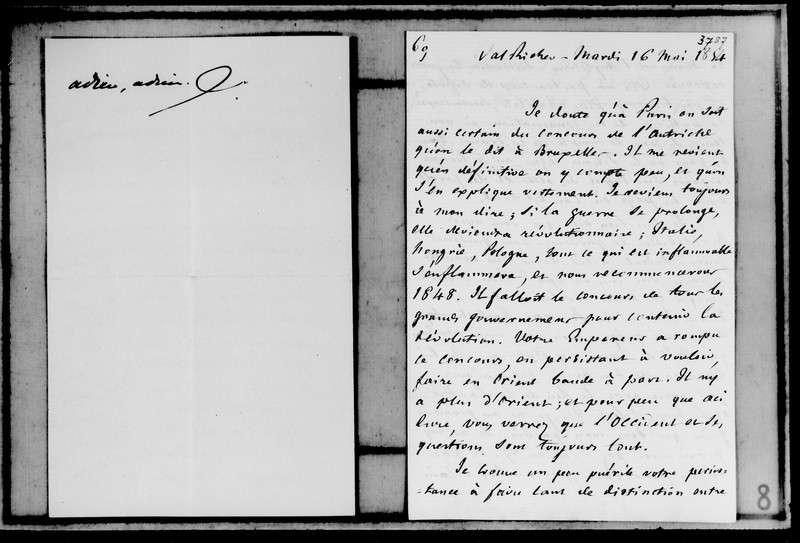 adieu, adieu.
69
3787
Val Richer - Mardi 16 Mai 1854
Je doute qu'à Paris on soit
aussi certain du concours de l'Autriche
qu'on le dit à Bruxelles. Il me revient
qu'en définitive on y compte peu, et qu'on
s'en explique vertement. Je reviens toujours
à mon dire ; si la guerre se prolonge,
elle deviendra révolutionnaire ; Italie,
Hongrie, Pologne, tout ce qui est inflammable
s'enflammera, et nous recommencerons
1848. Il falloit le concours de tous les
grands gouvernemens pour contenir la
révolution. Votre Empereur a rompu
ce concours, en persistant à vouloir,
faire en Orient bande à part. Il n'y
a plus d'Orient ; et pour peu que ceci
dure, vous verrez que l'Occident et ses
questions sont toujours tout.
Je trouve un peu puérile votre persis-
-tance à faire tant de distinction entre
8